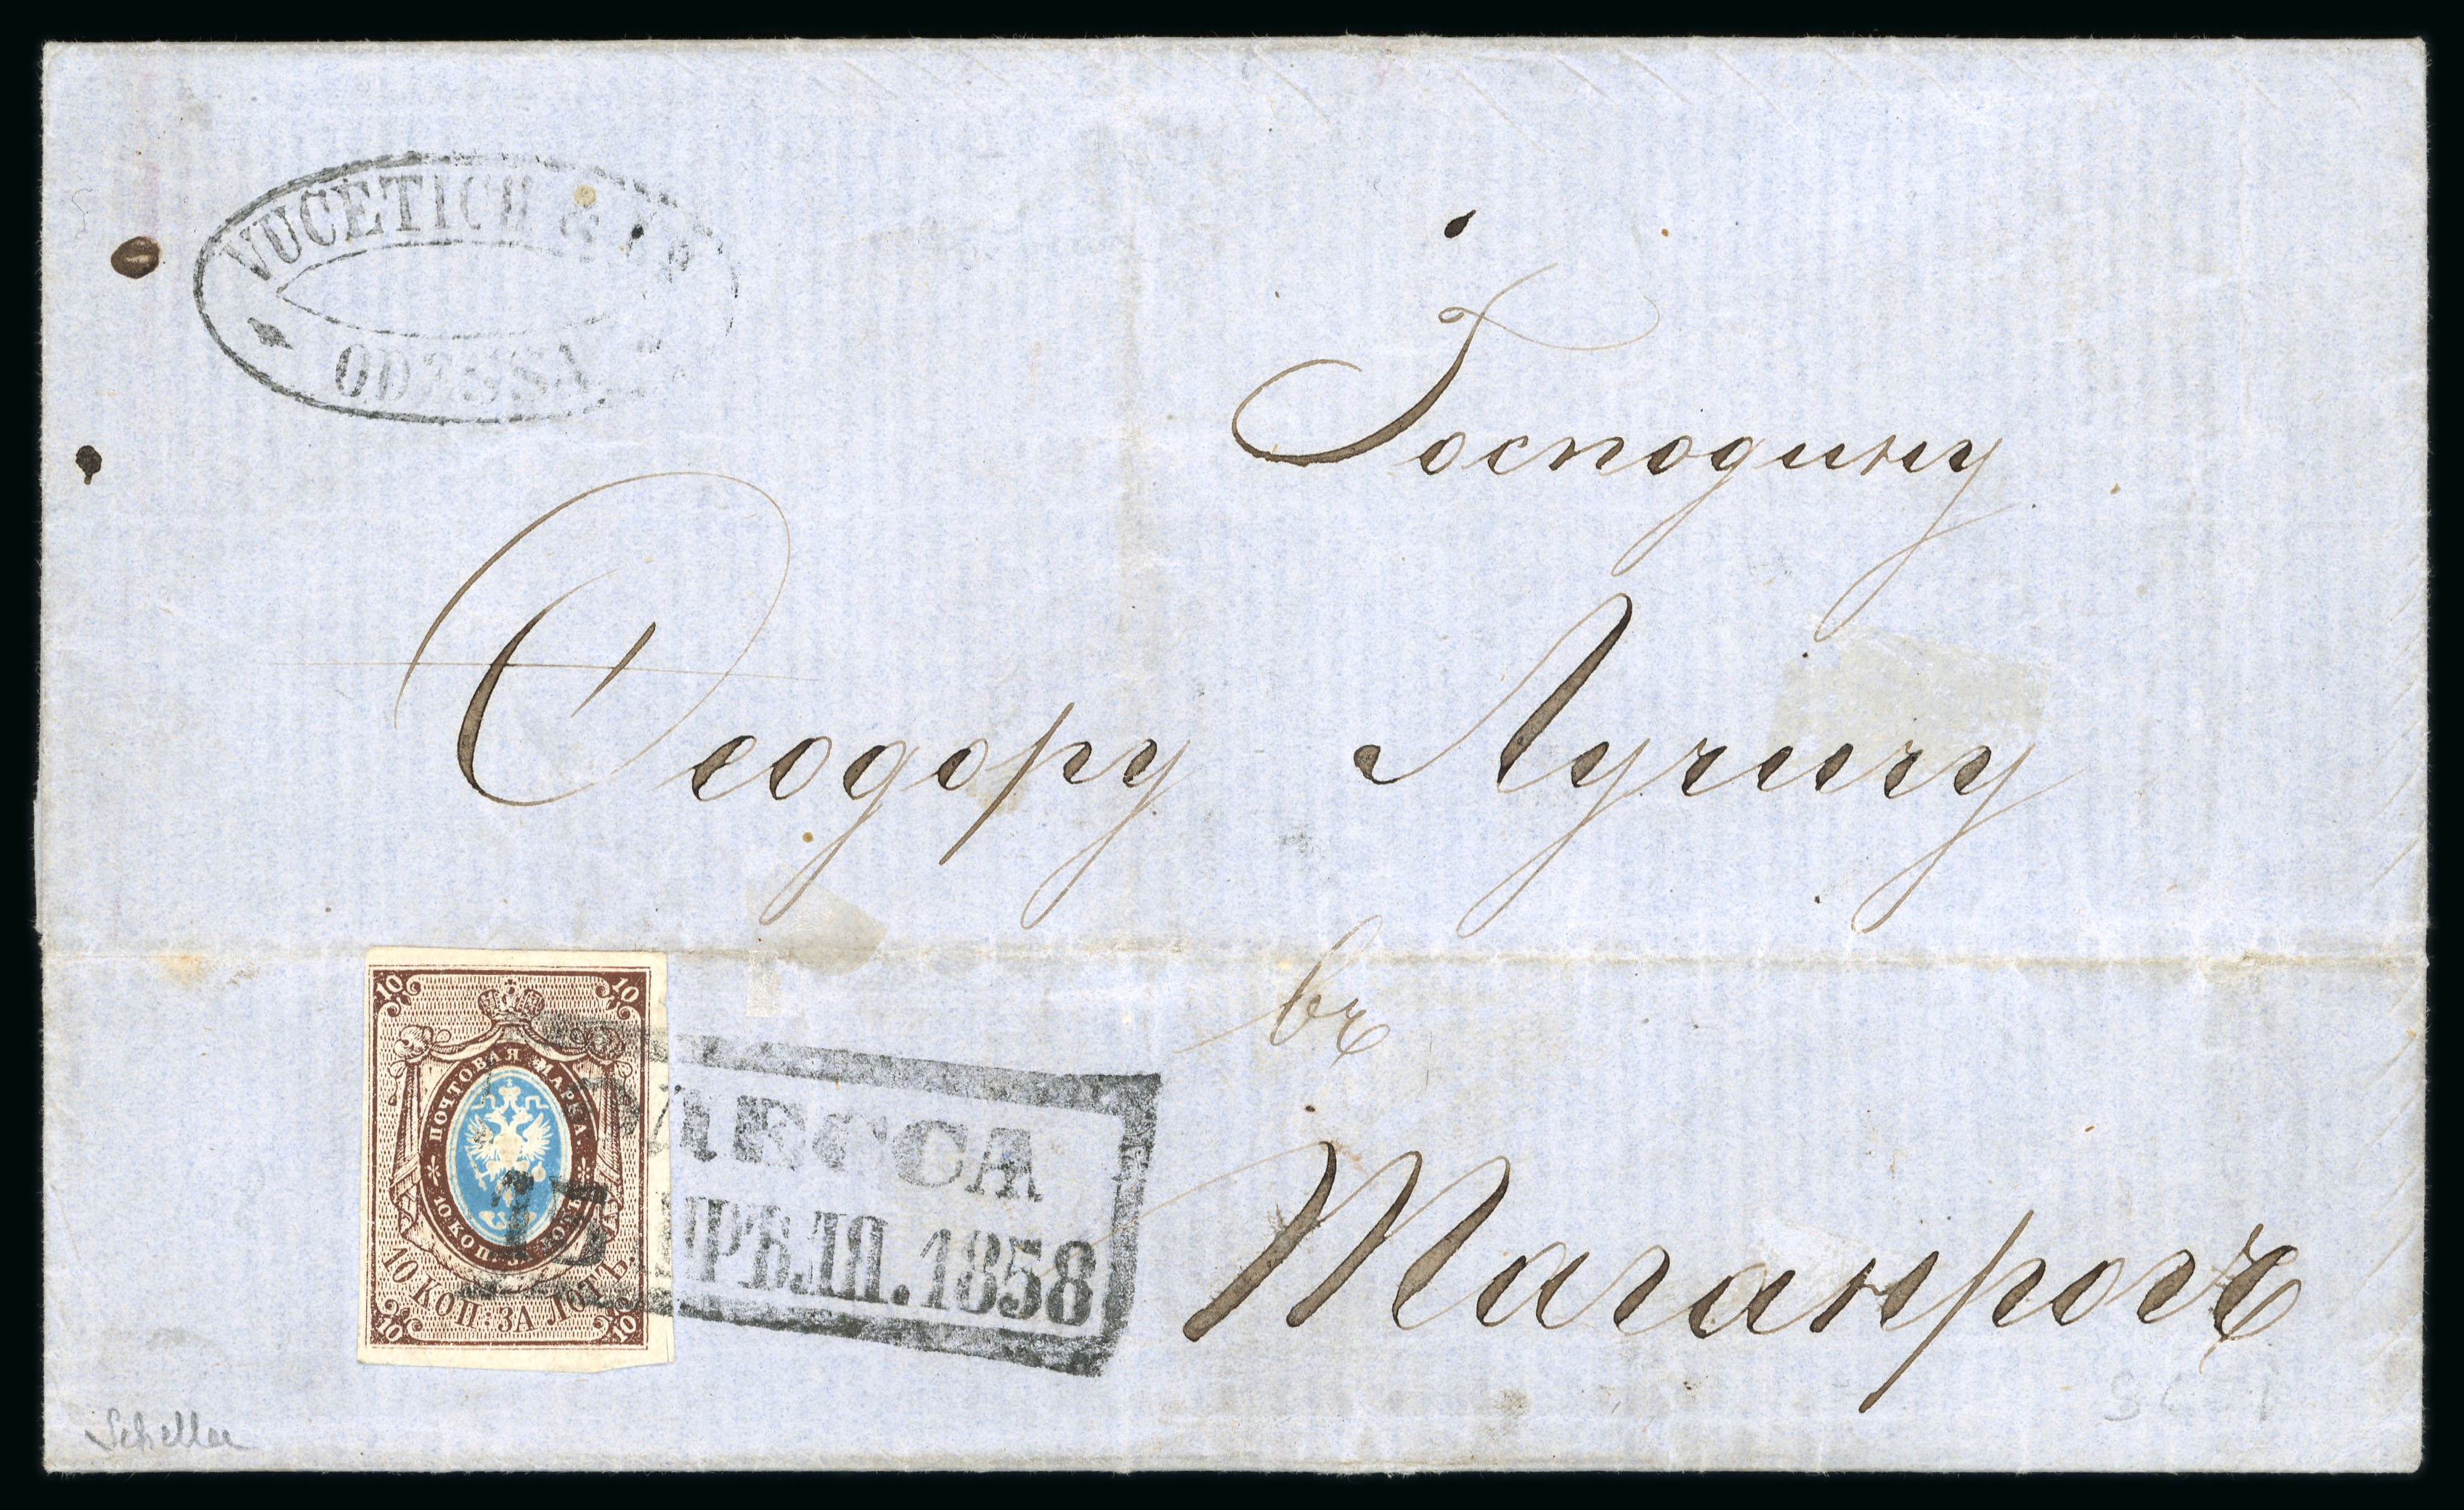 VUCETICH &
ODESSA
Господину
Ѳеодору Лучичу
въ
Таганрогъ
10 10
ПОЧТОВАЯ МАРКА.
10 КОПѢЕКЪ
10 КОП. ЗА ЛОТЪ.
10 10
ОДЕССА
АПРѢЛЯ. 1858
Scheller